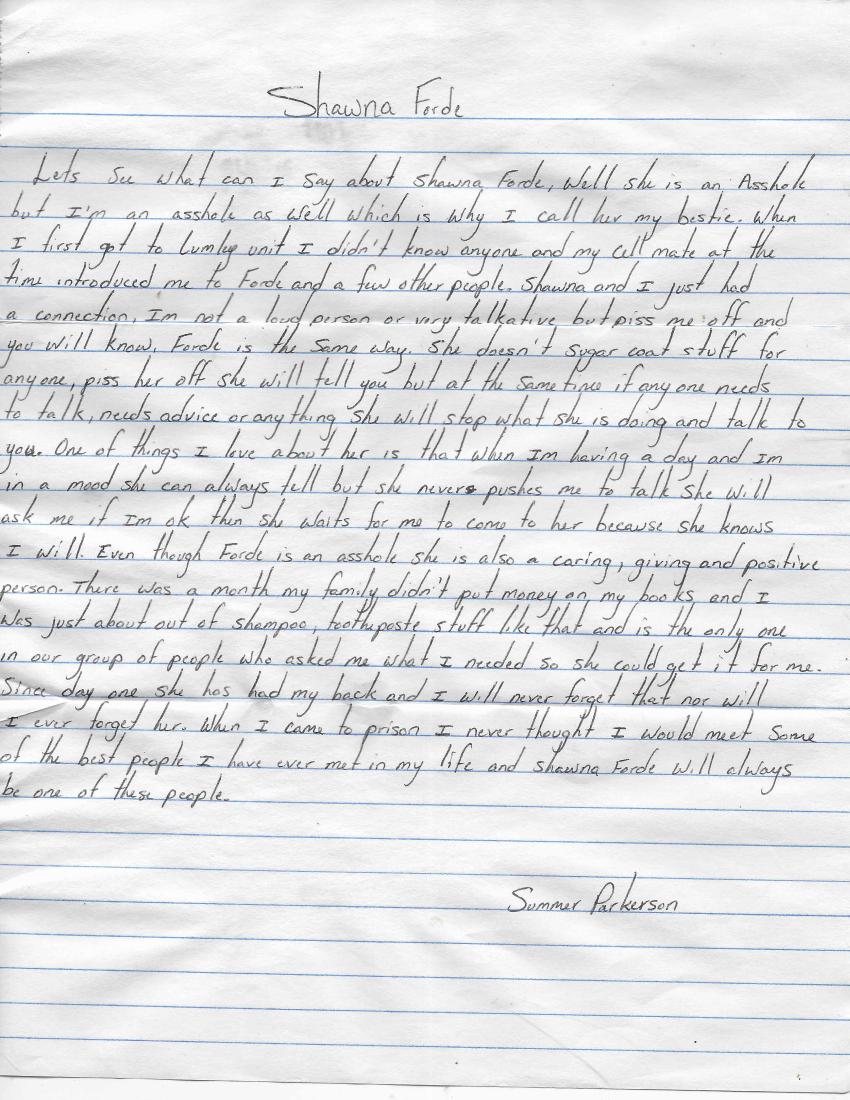 Shawna Forde
Lets See what can I say about Shawna Forde, Well she is an Asshole
but I'm an asshole as well which is why I call her my bestie. When
I first got to Lumley unit I didn't know anyone and my cell mate at the
time introduced me to Forde and a few other people. Shawna and I just had
a connection, Im not a loud person or very talkative but piss me off and
you will know. Forde is the same way. She doesn't sugar coat stuff for
anyone, piss her off she will tell you but at the same time if any one needs
to talk, needs advice or anything she will stop what she is doing and talk to
you. One of things I love about her is that when Im having a day and Im
in a mood she can always tell but she never pushes me to talk she will
ask me if Im ok then she waits for me to come to her because she knows
I will. Even though Forde is an asshole she is also a caring, giving and positive
person. There was a month my family didn't put money on my books and I
was just about out of shampoo, toothpaste stuff like that and is the only one
in our group of people who asked me what I needed so she could get it for me.
Since day one she has had my back and I will never forget that nor will
I ever forget her. When I came to prison I never thought I would meet some
of the best people I have ever met in my life and Shawna Forde will always
be one of these people.
Summer Parkerson